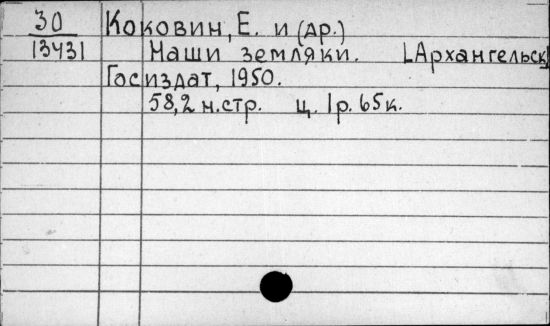 30 Коковин, Е. и (др.)
13431 Наши земляки. [Архангельск]
Госиздат, 1950.
58,2 н.стр. ц. 1р. 65к.